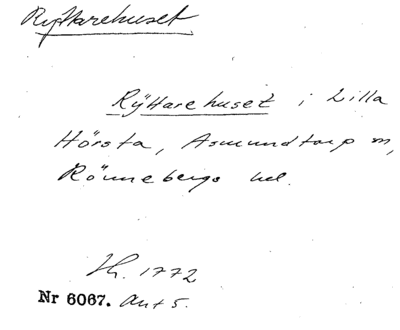 Ryttarehuset.
Ryttarehuset i Lilla
Hörsta, Asmundtorp m,
Rönnebergs hd.
Jh. 1772
Nr 6067. Akt 5.